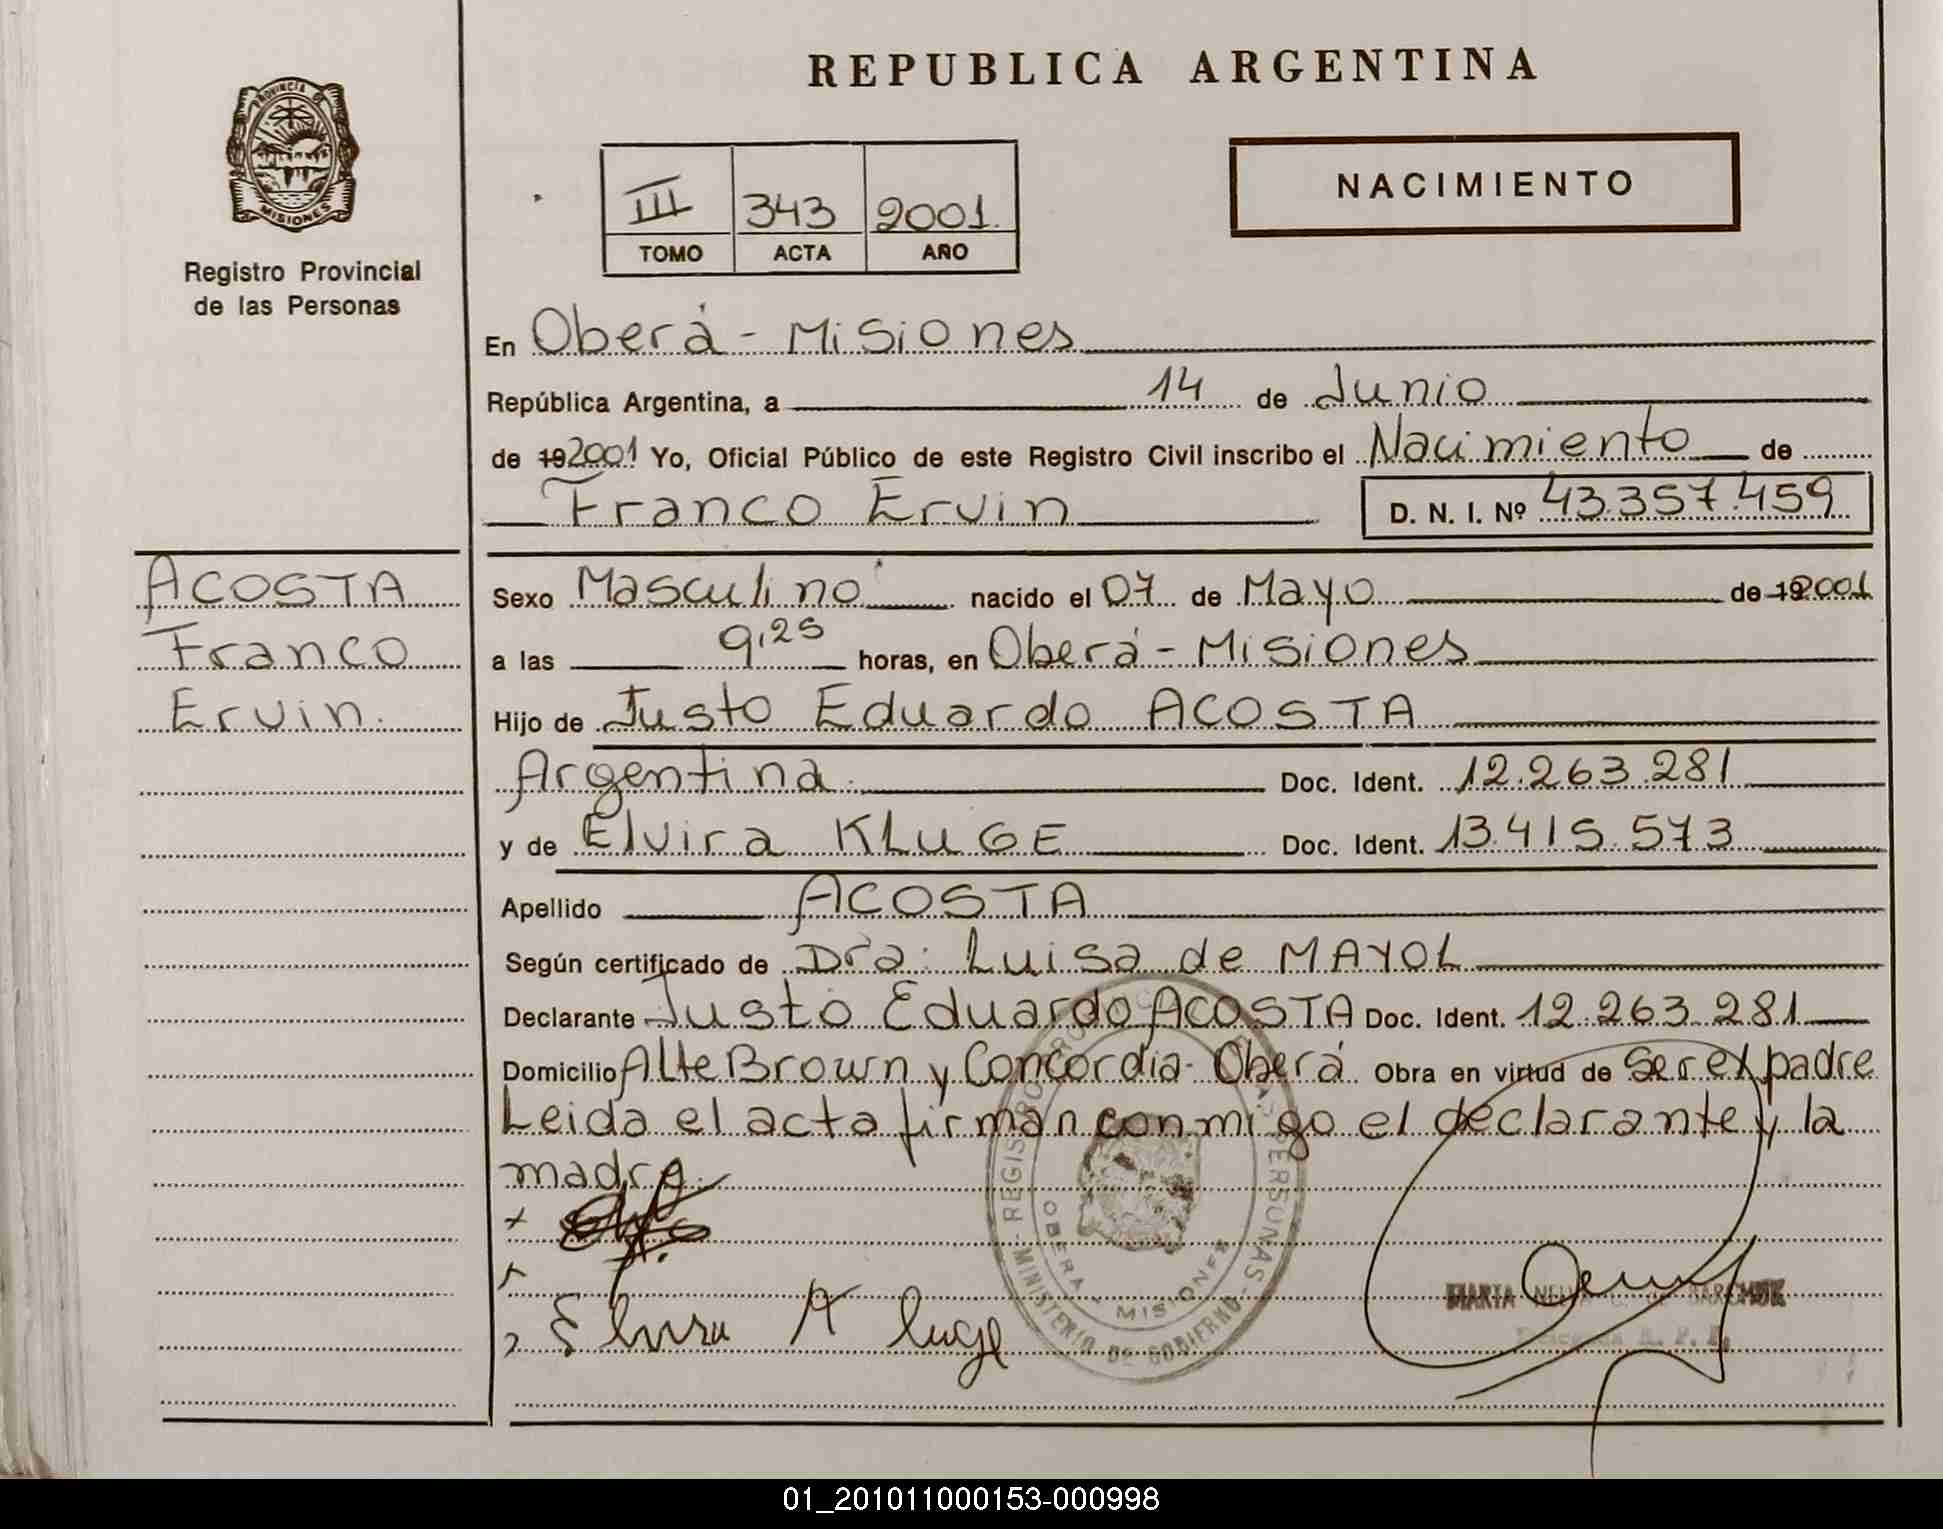 REPUBLICA ARGENTINA
PROVINCIA DE
MISIONES
Registro Provincial
de las Personas
III 343 2001.
TOMO ACTA AÑO
NACIMIENTO
En Oberá - Misiones
República Argentina, a 14 de Junio
de 192001 Yo, Oficial Público de este Registro Civil inscribo el Nacimiento de
Franco Ervin D. N. I. Nº 43.357.459
ACOSTA
Franco
Ervin.
Sexo Masculino nacido el 07 de Mayo de 192001
a las 9,25 horas, en Oberá - Misiones
Hijo de Justo Eduardo ACOSTA
Argentina. Doc. Ident. 12.263.281
y de Elvira KLUGE Doc. Ident. 13.415.573
Apellido ACOSTA
Según certificado de Dra: Luisa de MAYOL
Declarante Justo Eduardo ACOSTA Doc. Ident. 12.263.281
Domicilio Alte Brown y Concordia - Oberá Obra en virtud de ser el padre
Leida el acta firman conmigo el declarante y la
madre.
REGISTRO PERSONAS
MINISTERIO DE GOBIERNO
OBERA - MISIONES
MARIA
R. P. P.
Elvira A luge
01_201011000153-000998